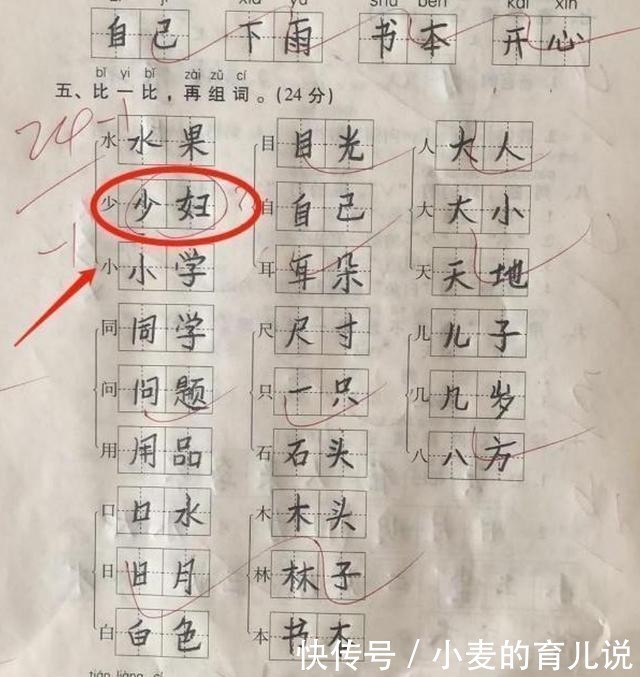 自己 下雨 书本 开心
bǐ yi bǐ zài zǔ cí
五、比一比，再组词。(24分)
24-1
水 水果 目 目光 人 大人
少 少妇 自 自己 大 大小
-1
小 小学 耳 耳朵 天 天地
同 同学 尺 尺寸 儿 儿子
问 问题 只 一只 几 几岁
用 用品 石 石头 八 八方
口 口水 木 木头
日 日月 林 林子
白 白色 本 书本
快传号 / 小麦的育儿说